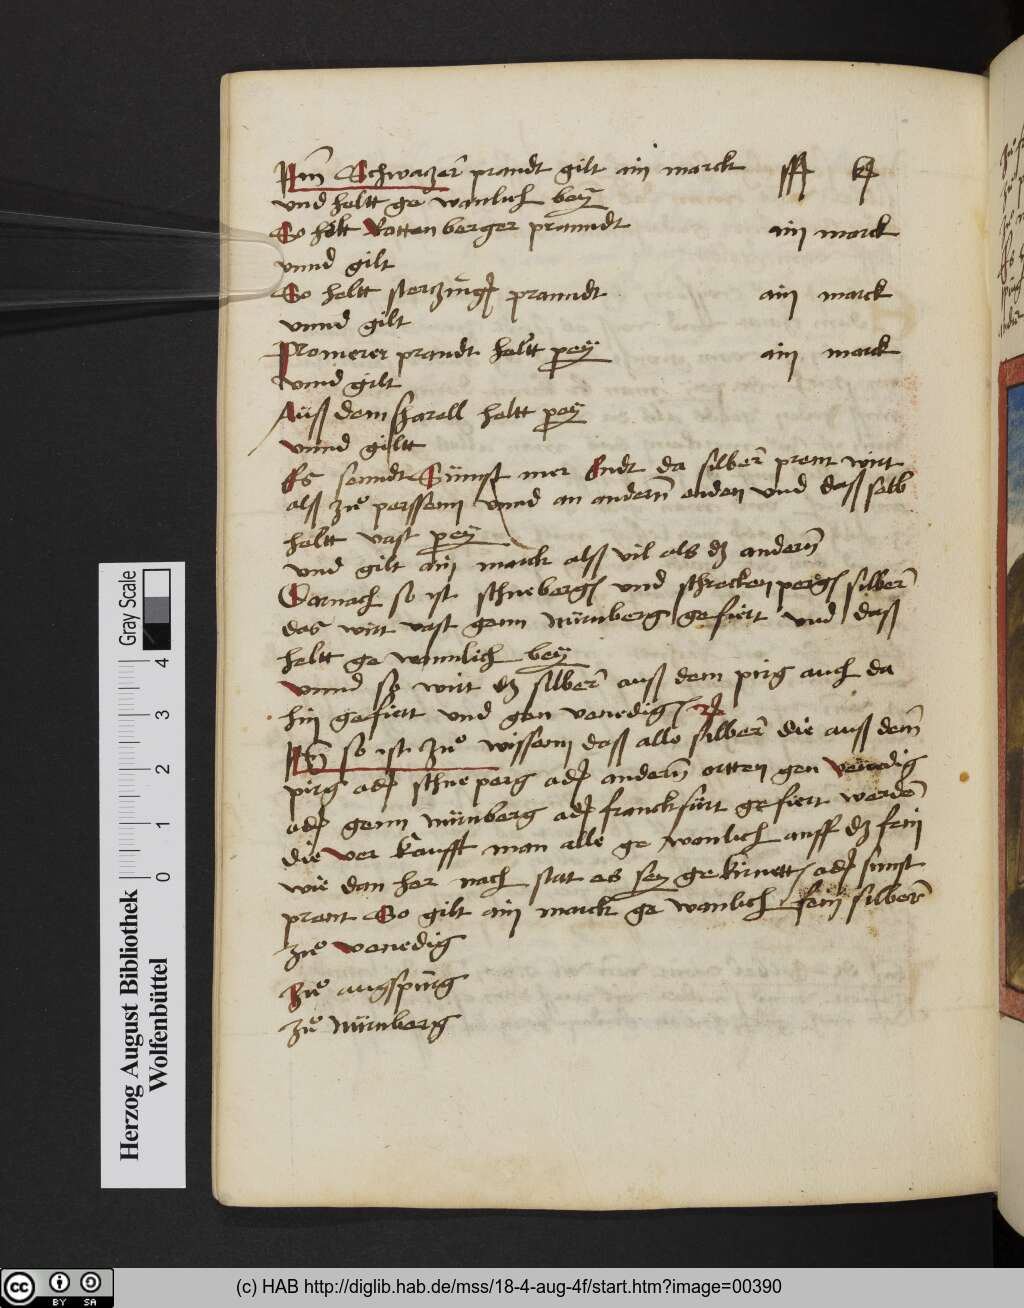 Schwazer prandt gilt ain marck
und heltt ge wonlich bey
So helt Rottenberger pranndt ain marck
vnnd gilt
So heltt pranndt ain marck
vnnd gilt
prandt heltt pey ain marck
vnnd gilt
Auß dem heltt pey
vnnd giltt
Es senndt Sünnst mer Endt da silber prent wirt
alß zu perssenn vnnd an andern enden vnd daß selb
heltt vast pey
vnd gilt ain marck alß vil als dz andern
Darnach so ist schneberg vnd schrecken perg silber
das wirt vast genn Nürnberg gefiert vnd daß
heltt ge wonnlich bey
vnnd so wirt dz silber auß dem pirg auch da
hin gefiert vnd gen venedig
so ist zu wissenn daß alle silber die auß dem
pirg ader schne perg ader andern ortten gen venedig
ader genn Nürnberg ader franckfürt gefiert werden
die ver kaufft man alle ge wonlich auff dz fein
wie dan her nach stat es sey gekirnett ader sünst
prent So gilt ain marck ge wonlich fein silber
zu venedig
zu augspurg
zu Nürnberg
Herzog August Bibliothek
Wolfenbüttel
0 1 2 3 4
Gray Scale
cc BY SA
(c) HAB http://diglib.hab.de/mss/18-4-aug-4f/start.htm?image=00390